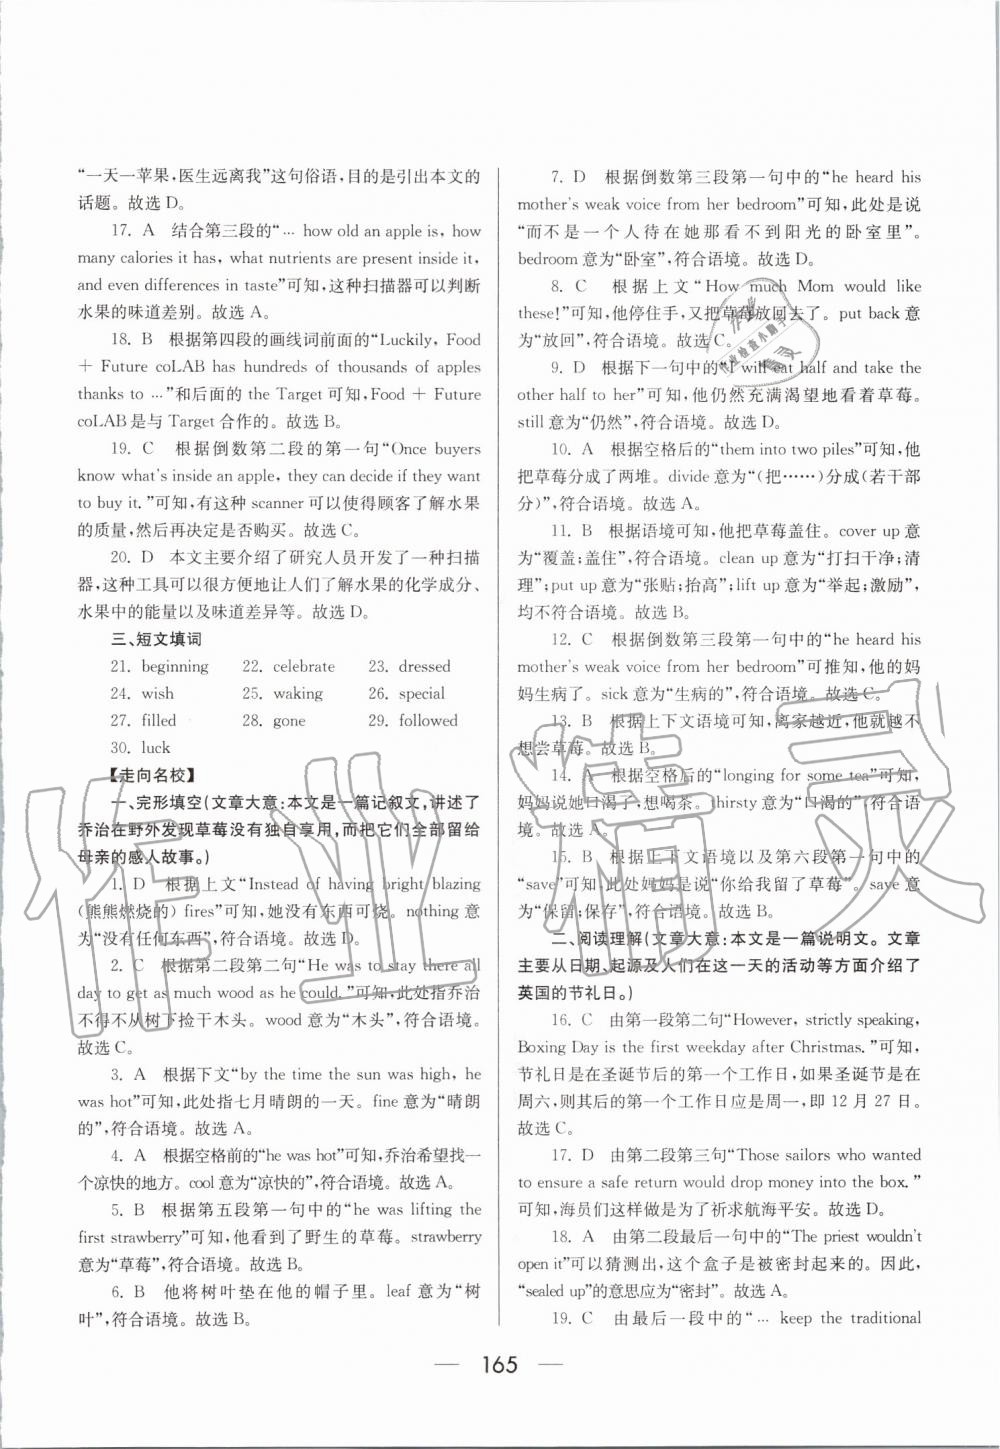 “一天一苹果,医生远离我”这句俗语,目的是引出本文的
话题。故选D。
17. A 结合第三段的“… how old an apple is, how
many calories it has, what nutrients are present inside it,
and even differences in taste”可知,这种扫描器可以判断
水果的味道差别。故选A。
18. B 根据第四段的画线词前面的“Luckily, Food
+ Future coLAB has hundreds of thousands of apples
thanks to …”和后面的 the Target 可知,Food + Future
coLAB是与 Target 合作的。故选B。
19. C 根据倒数第二段的第一句“Once buyers
know what's inside an apple, they can decide if they want
to buy it.”可知,有这种 scanner 可以使得顾客了解水果
的质量,然后再决定是否购买。故选C。
20. D 本文主要介绍了研究人员开发了一种扫描
器,这种工具可以很方便地让人们了解水果的化学成分、
水果中的能量以及味道差异等。故选D。
三、短文填词
21. beginning 22. celebrate 23. dressed
24. wish 25. waking 26. special
27. filled 28. gone 29. followed
30. luck
【走向名校】
一、完形填空(文章大意:本文是一篇记叙文,讲述了
乔治在野外发现草莓没有独自享用,而把它们全部留给
母亲的感人故事。)
1. D 根据上文“Instead of having bright blazing
(熊熊燃烧的) fires”可知,她没有东西可烧。nothing 意
为“没有任何东西”,符合语境。故选D。
2. C 根据第二段第二句“He was to stay there all
day to get as much wood as he could.”可知,此处指乔治
不得不从树下捡干木头。wood 意为“木头”,符合语境。
故选C。
3. A 根据下文“by the time the sun was high, he
was hot”可知,此处指七月晴朗的一天。fine 意为“晴朗
的”,符合语境。故选A。
4. A 根据空格前的“he was hot”可知,乔治希望找一
个凉快的地方。cool 意为“凉快的”,符合语境。故选A。
5. B 根据第五段第一句中的“he was lifting the
first strawberry”可知,他看到了野生的草莓。strawberry
意为“草莓”,符合语境。故选B。
6. B 他将树叶垫在他的帽子里。leaf 意为“树
叶”,符合语境。故选B。
7. D 根据倒数第三段第一句中的“he heard his
mother's weak voice from her bedroom”可知,此处是说
“而不是一个人待在她那看不到阳光的卧室里”。
bedroom 意为“卧室”,符合语境。故选D。
8. C 根据上文“How much Mom would like
these!”可知,他停住手,又把草莓放回去了。put back 意
为“放回”,符合语境。故选C。
9. D 根据下一句中的“I will eat half and take the
other half to her”可知,他仍然充满渴望地看着草莓。
still 意为“仍然”,符合语境。故选D。
10. A 根据空格后的“them into two piles”可知,他
把草莓分成了两堆。divide 意为“(把……)分成(若干部
分)”,符合语境。故选A。
11. B 根据语境可知,他把草莓盖住。cover up 意
为“覆盖;盖住”,符合语境。clean up 意为“打扫干净;清
理”;put up 意为“张贴;抬高”;lift up 意为“举起;激励”,
均不符合语境。故选B。
12. C 根据倒数第三段第一句中的“he heard his
mother's weak voice from her bedroom”可推知,他的妈
妈生病了。sick 意为“生病的”,符合语境。故选C。
13. B 根据上下文语境可知,离家越近,他就越不
想尝草莓。故选B。
14. A 根据空格后的“longing for some tea”可知,
妈妈说她口渴了,想喝茶。thirsty 意为“口渴的”,符合语
境。故选A。
15. B 根据上下文语境以及第六段第一句中的
“save”可知,此处妈妈是说“你给我留了草莓”。save 意
为“保留;保存”,符合语境。故选B。
二、阅读理解(文章大意:本文是一篇说明文。文章
主要从日期、起源及人们在这一天的活动等方面介绍了
英国的节礼日。)
16. C 由第一段第二句“However, strictly speaking,
Boxing Day is the first weekday after Christmas.”可知,
节礼日是在圣诞节后的第一个工作日,如果圣诞节是在
周六,则其后的第一个工作日应是周一,即12月27日。
故选C。
17. D 由第二段第三句“Those sailors who wanted
to ensure a safe return would drop money into the box.”
可知,海员们这样做是为了祈求航海平安。故选D。
18. A 由第二段最后一句中的“The priest wouldn't
open it”可以猜测出,这个盒子是被密封起来的。因此,
“sealed up”的意思应为“密封”。故选A。
19. C 由最后一段中的“… keep the traditional
— 165 —
作业精灵